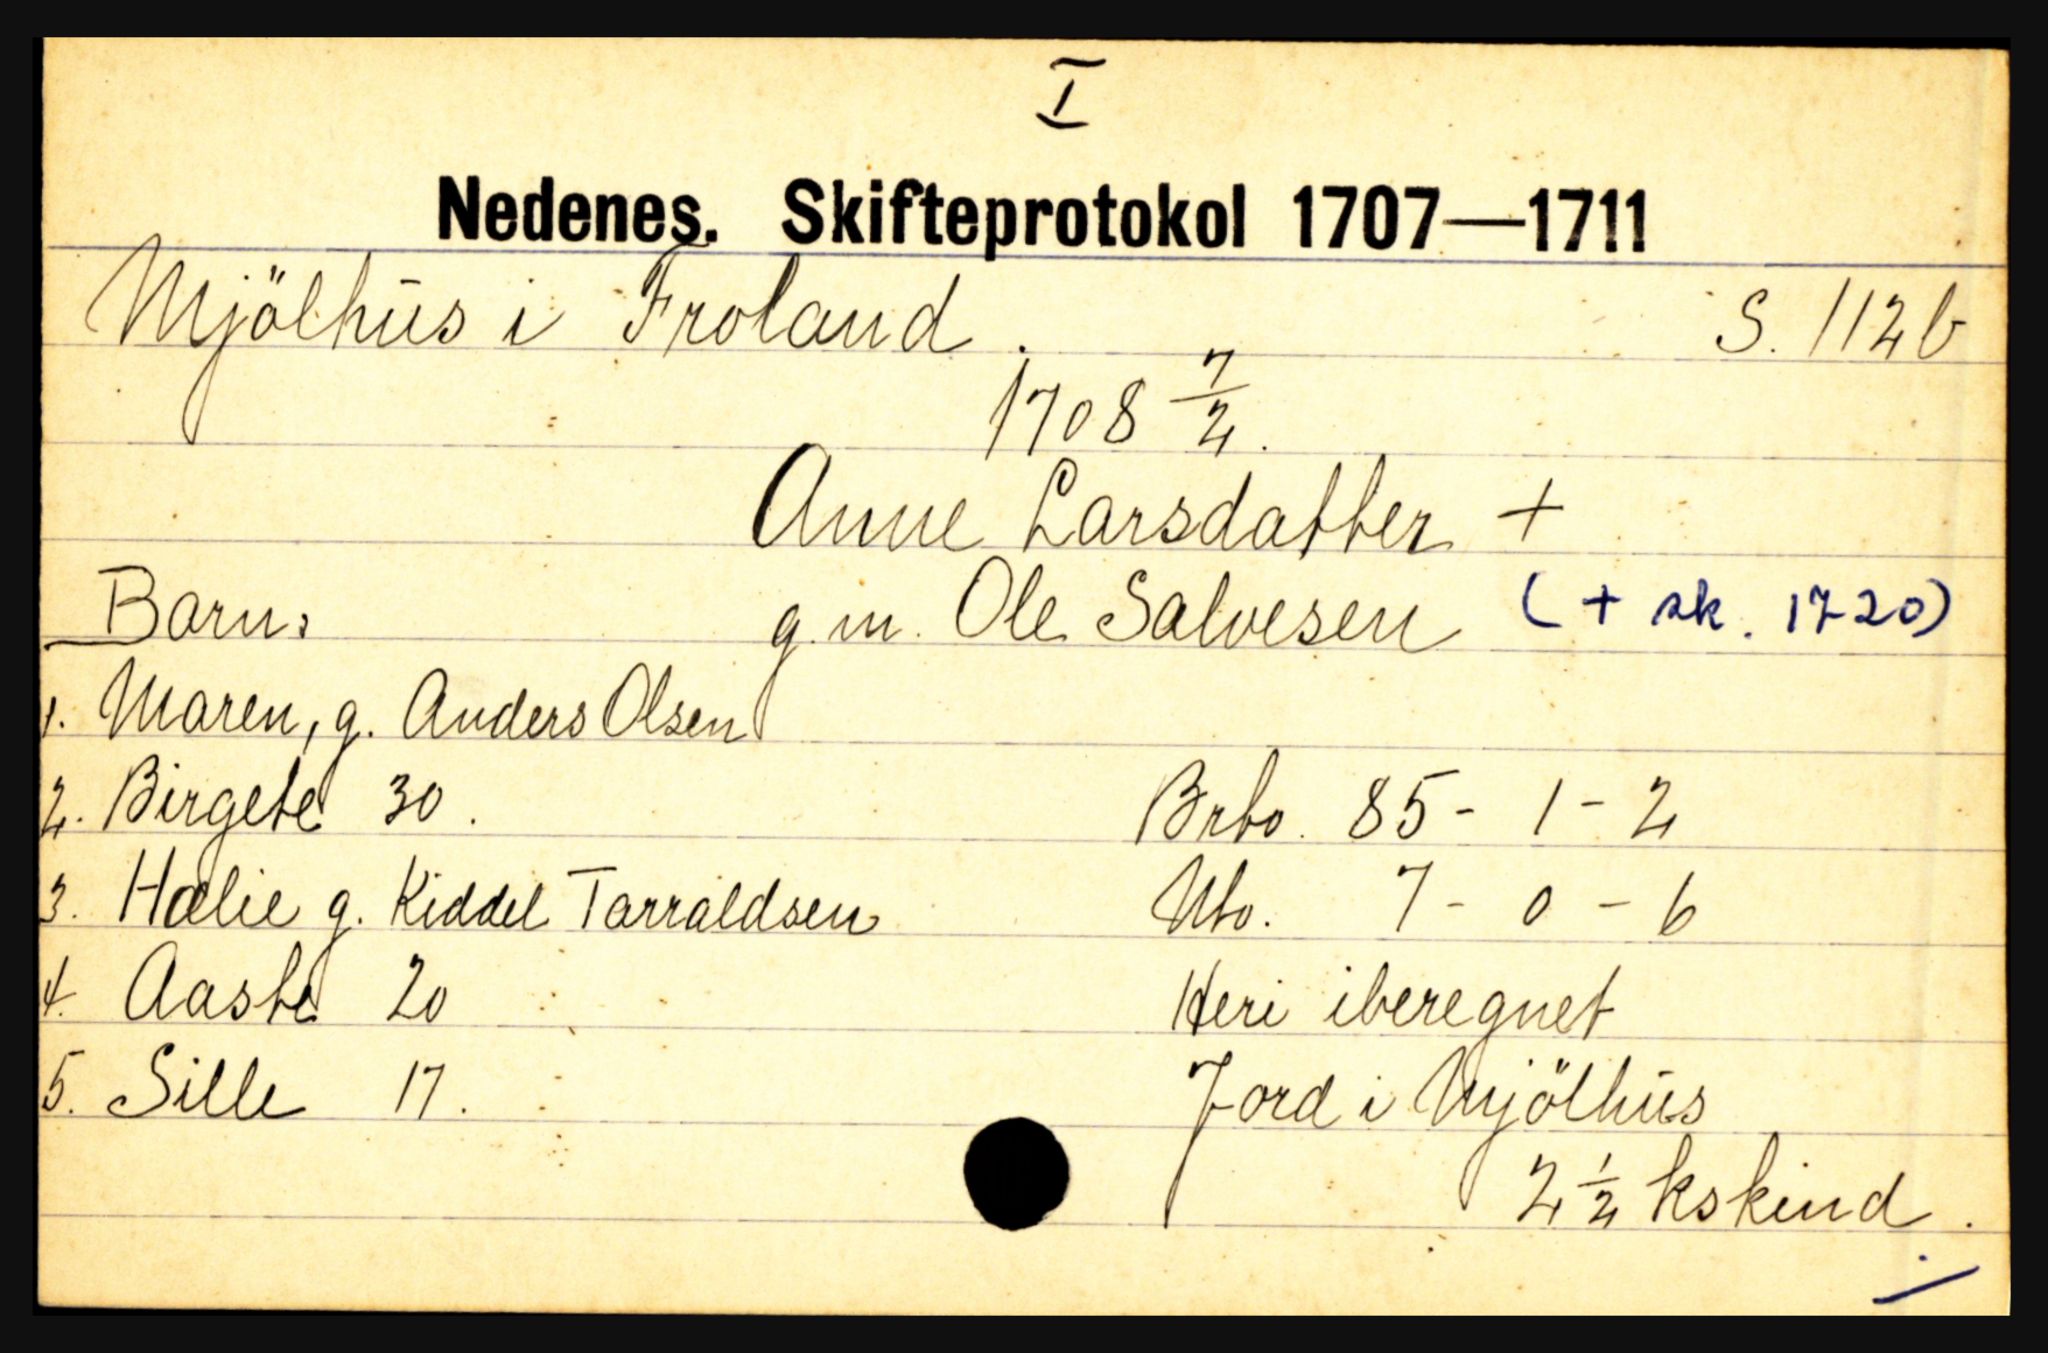 I
Nedenes. Skifteprotokol 1707—1711
Mjölhus i Froland. S. 112b
1708 7/2.
Anne Larsdatter +
Barn: g.m. Ole Salvesen (+ sk. 1720)
1. Maren, g. Anders Olsen
2. Birgete 30. Brto. 85 - 1 - 2
3. Hælie g. Kiddel Tarraldsen Nto. 7 - 0 - 6
4. Aaste 20 Heri iberegnet
5. Sille 17. Jord i Mjölhus
2 1/2 kskind.